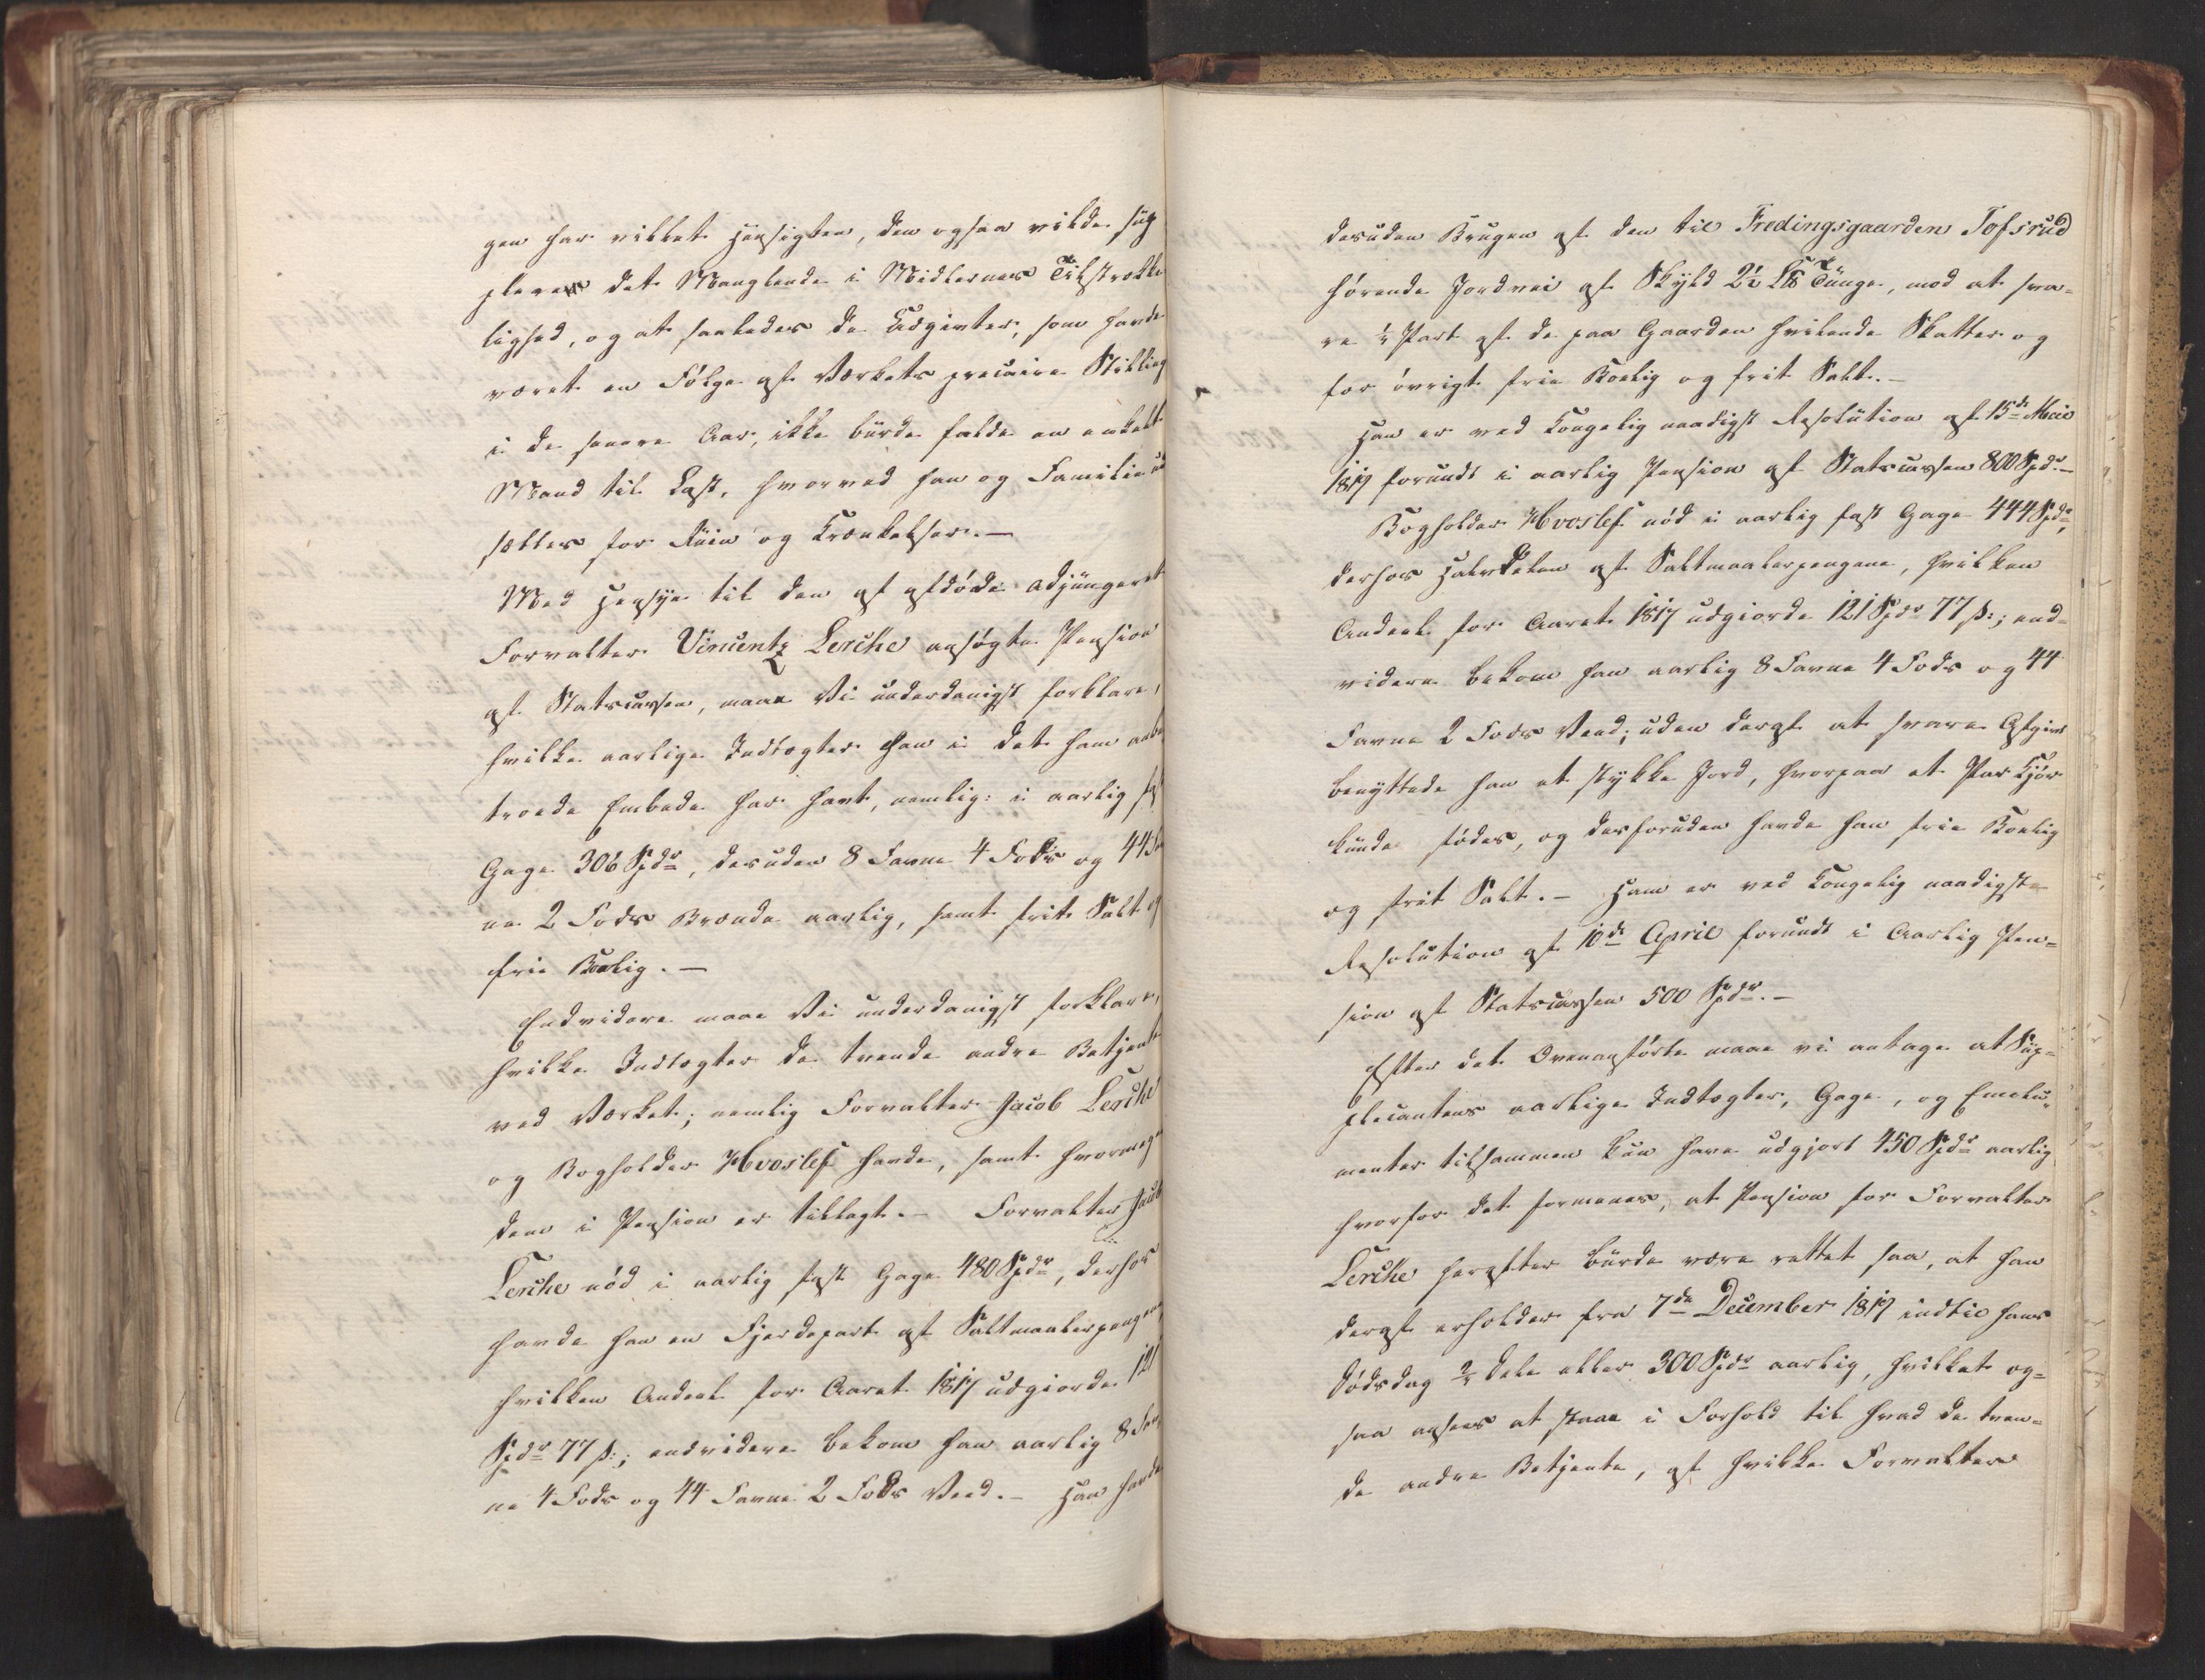 gen har vikket Hensigten, den ogsaa vilde sup
plere det Manglende i Midlernes Tilstrække
lighed, og at saaledes de Udgivter, som havde
været en Følge af Værkets precaire Stilling
i de senere Aar, ikke burde falde en enkelt
Mand til Last, hvorved han og Familie ud
sættes for Ruin og Krænkelser.—
Med Hensyn til den af afdøde adjungeret
Forvalter Vincentz Lerche ansøgte Pension
af Statscassen, maae Vi underdanigst forklare,
hvilke aarlige Indtægter han i det ham anbe
troede Embede har havt, nemlig: i aarlig fast
Gage 306 Spdr, desuden 8 Favne 4 Fods og 44 Fav
ne 2 Fods Brænde aarlig, samt frit Salt og
frie Bolig.—
Endvidere maae Vi underdanigst forklare,
hvilke Indtægter de tvende andre Betjente
ved Værket; nemlig Forvalter Jacob Lerche
og Bogholder Hvoslef havde, samt hvormeget
dem i Pension er tillagt.— Forvalter Jacob
Lerche nød i aarlig fast Gage 480 Spdr, derhos
havde han en Fjerdepart af Saltmaalerpengene
hvilken Andeel for Aaret 1817 udgiorde 121
Spdr 77 ß.; endvidere bekom han aarlig 8 Fav
ne 4 Fods og 44 Favne 2 Fods Veed.— Han havde
desuden Brugen af den til Fredingsgaarden Tofsrud
hørende Jordvei af Skyld 2½ L℔ Tunge, mod at sva=
re ½ Part af de paa Gaarden hvilende Skatter og
for øvrigt frie Bolig og frit Salt.—
Han er ved Kongelig naadigst Resolution af 15de Maii
1819 forundt i aarlig Pension af Statscassen 800 Spdr.—
Bogholder Hvoslef nød i aarlig fast Gage 444 Spdr,
derhos Halvdelen af Saltmaalerpengene, hvilken
Andeel for Aaret 1817 udgiorde 121 Spdr 77 ß.; end=
videre bekom han aarlig 8 Favne 4 Fods og 44
Favne 2 Fods Veed; uden deraf at svare Afgivt
benyttede han et stykke Jord, hvorpaa et Par Kjør
kunde fødes, og desforuden havde han frie Bolig
og frit Salt.— Ham er ved Kongelig naadigste
Resolution af 10de April forundt i Aarlig Pen=
sion af Statscassen 500 Spdr.—
Efter det Ovenanførte maae vi antage at Sup=
plicantens aarlige Indtægter, Gage, og Emolu=
menter tilsammen kun have udgjort 450 Spdr aarlig
hvorfor det formenes, at Pension for Forvalter
Lerche herefter burde være rettet saa, at han
deraf erholder fra 7de December 1819 indtil hans
Dødsdag ⅔ Dele eller 300 Spdr aarlig, hvilket og=
saa ansees at staae i Forhold til hvad de tven=
de andre Betjente, af hvilke Forvalter